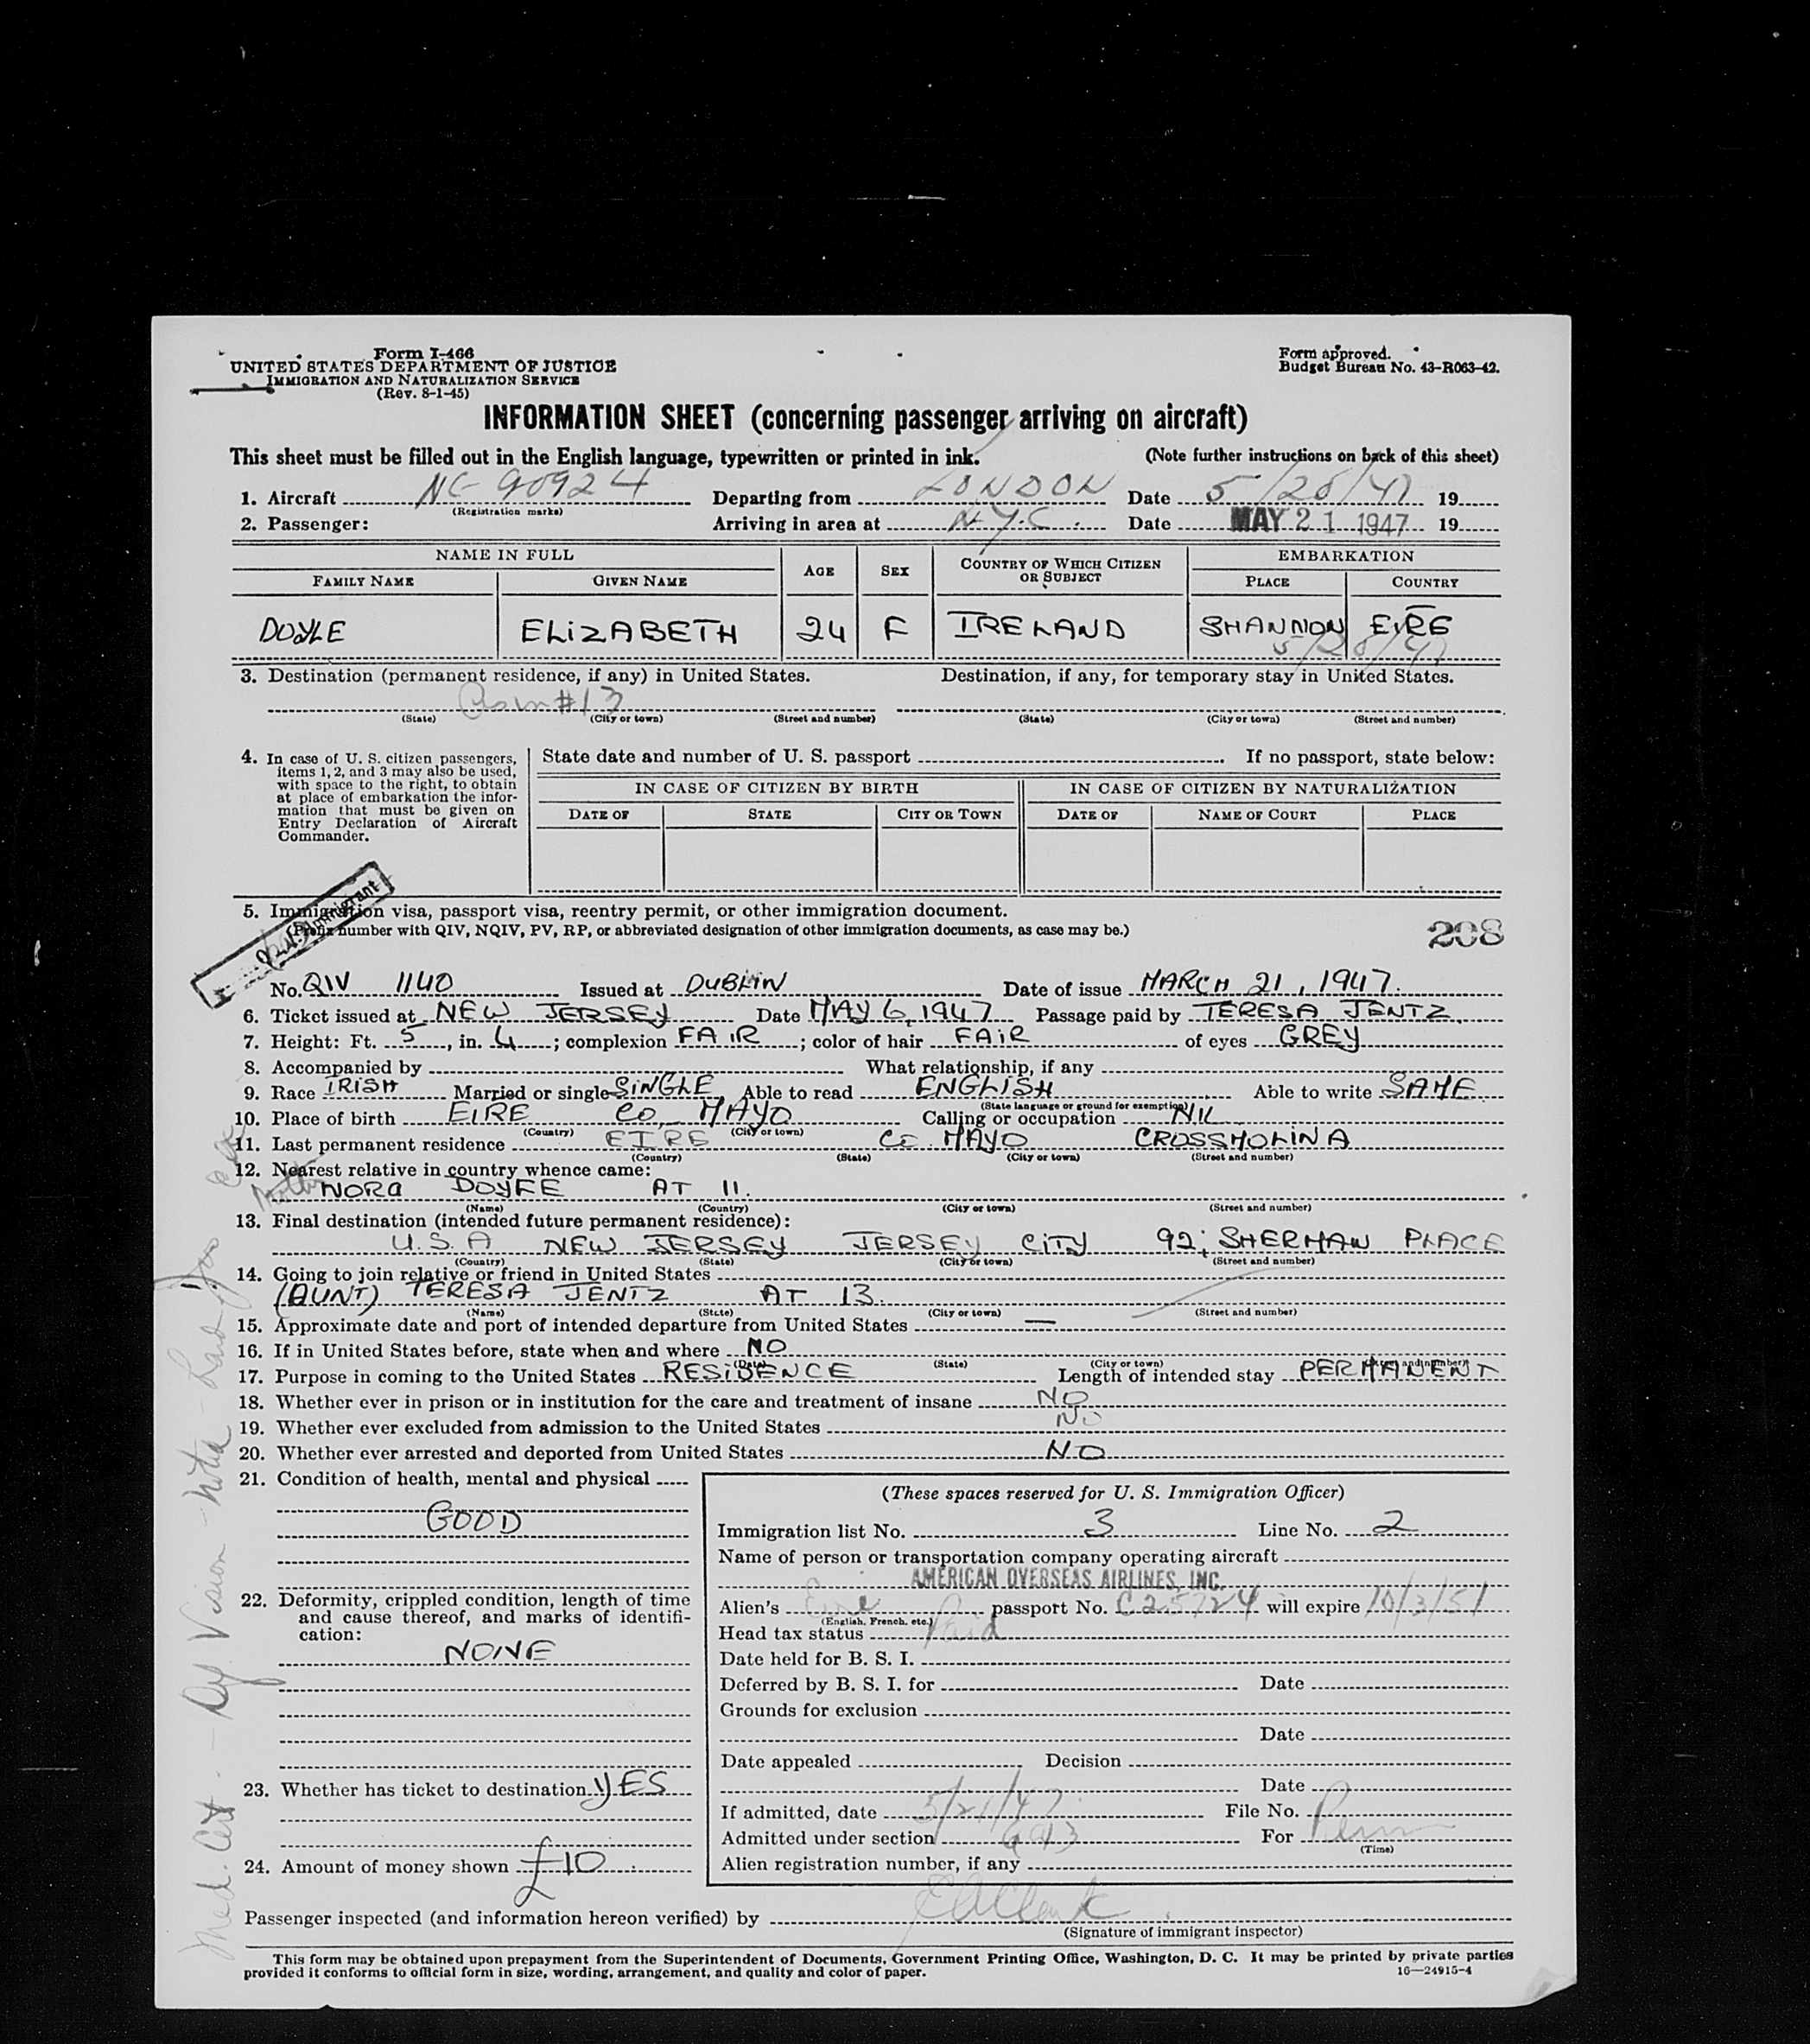 Form I-466
UNITED STATES DEPARTMENT OF JUSTICE
IMMIGRATION AND NATURALIZATION SERVICE
(Rev. 8-1-45)
Form approved.
Budget Bureau No. 43-R063-42.
INFORMATION SHEET (concerning passenger arriving on aircraft)
This sheet must be filled out in the English language, typewritten or printed in ink. (Note further instructions on back of this sheet)
1. Aircraft NC 90924 Departing from LONDON Date 5/20/47 19
(Registration marks)
2. Passenger: Arriving in area at N.Y.C. Date MAY 21 1947 19
NAME IN FULL AGE SEX COUNTRY OF WHICH CITIZEN OR SUBJECT EMBARKATION
FAMILY NAME GIVEN NAME PLACE COUNTRY
DOYLE ELIZABETH 24 F IRELAND SHANNON EIRE
5/20/47
3. Destination (permanent residence, if any) in United States. Destination, if any, for temporary stay in United States.
#13
(State) (City or town) (Street and number) (State) (City or town) (Street and number)
4. In case of U. S. citizen passengers, items 1, 2, and 3 may also be used, with space to the right, to obtain at place of embarkation the information that must be given on Entry Declaration of Aircraft Commander.
State date and number of U. S. passport . If no passport, state below:
IN CASE OF CITIZEN BY BIRTH IN CASE OF CITIZEN BY NATURALIZATION
DATE OF STATE CITY OR TOWN DATE OF NAME OF COURT PLACE
5. Immigration visa, passport visa, reentry permit, or other immigration document.
(Prefix number with QIV, NQIV, PV, RP, or abbreviated designation of other immigration documents, as case may be.)
208
No. QIV 1140 Issued at DUBLIN Date of issue MARCH 21, 1947.
6. Ticket issued at NEW JERSEY Date MAY 6, 1947 Passage paid by TERESA JENTZ
7. Height: Ft. 5, in. 4; complexion FAIR; color of hair FAIR of eyes GREY
8. Accompanied by What relationship, if any
9. Race IRISH Married or single SINGLE Able to read ENGLISH Able to write SAME
(State language or ground for exemption)
10. Place of birth EIRE CO. MAYO Calling or occupation NIL
(Country) (City or town)
11. Last permanent residence EIRE CO. MAYO CROSSMOLINA
(Country) (State) (City or town) (Street and number)
12. Nearest relative in country whence came:
Mother NORA DOYLE AT 11.
(Name) (Country) (City or town) (Street and number)
13. Final destination (intended future permanent residence):
U.S.A NEW JERSEY JERSEY CITY 92; SHERMAN PLACE
(Country) (State) (City or town) (Street and number)
14. Going to join relative or friend in United States
(AUNT) TERESA JENTZ AT 13.
(Name) (State) (City or town) (Street and number)
15. Approximate date and port of intended departure from United States —
16. If in United States before, state when and where NO
(Date) (State) (City or town) (Street and number)
17. Purpose in coming to the United States RESIDENCE Length of intended stay PERMANENT
18. Whether ever in prison or in institution for the care and treatment of insane NO
19. Whether ever excluded from admission to the United States NO
20. Whether ever arrested and deported from United States NO
21. Condition of health, mental and physical
GOOD
22. Deformity, crippled condition, length of time and cause thereof, and marks of identification:
NONE
23. Whether has ticket to destination YES
24. Amount of money shown £10
(These spaces reserved for U. S. Immigration Officer)
Immigration list No. 3 Line No. 2
Name of person or transportation company operating aircraft
AMERICAN OVERSEAS AIRLINES, INC.
Alien's Eire passport No. C25724 will expire 10/3/51
(English, French, etc.)
Head tax status Paid
Date held for B. S. I.
Deferred by B. S. I. for Date
Grounds for exclusion
Date
Date appealed Decision
Date
If admitted, date 5/21/47 File No.
Admitted under section 6a3 For Perm
(Time)
Alien registration number, if any
Passenger inspected (and information hereon verified) by
(Signature of immigrant inspector)
This form may be obtained upon prepayment from the Superintendent of Documents, Government Printing Office, Washington, D. C. It may be printed by private parties
provided it conforms to official form in size, wording, arrangement, and quality and color of paper. 16—24915-4
Med. Cert. - Vision